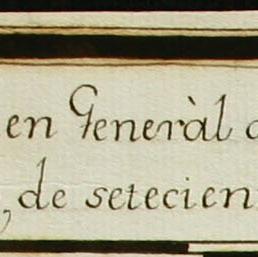 en Generàl
, de setecien